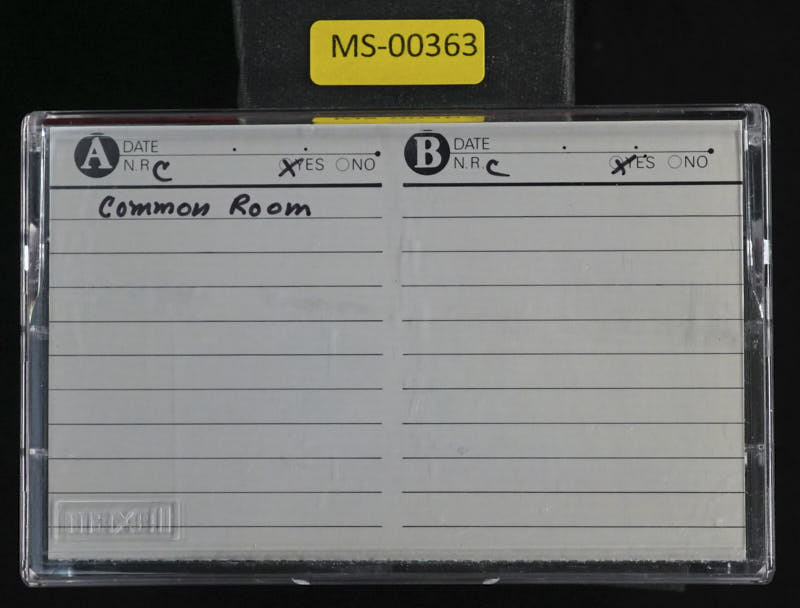 MS-00363
A DATE
N.R. C YES NO
B DATE
N.R. C YES NO
Common Room
maxell